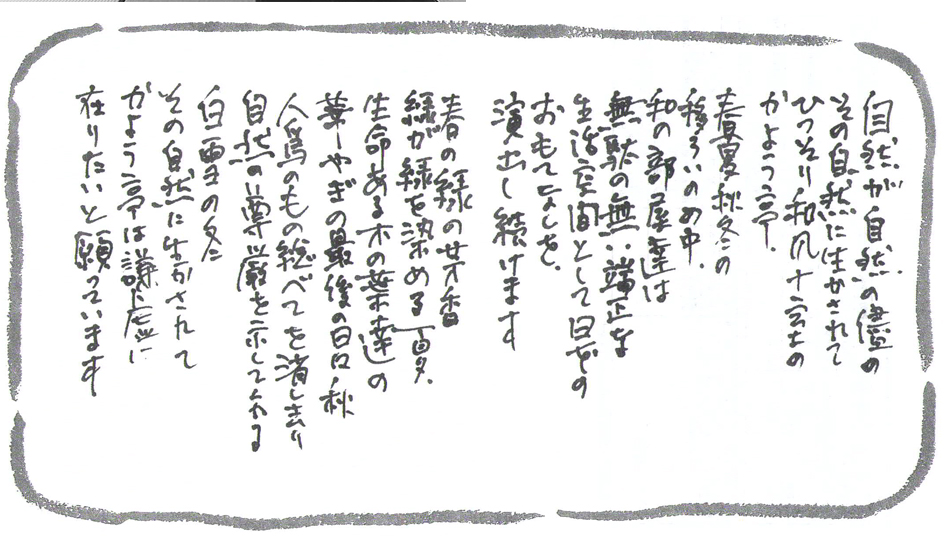 自然が自然の儘の
その自然に生かされて
ひっそり和風十二室の
かよう亭。
春夏秋冬の
移ろいの中、
和の部屋達は
無駄の無い端正な
生活空間として日々の
おもてなしを、
演出し続けます
春の緑の芽香
緑が緑を染める夏、
生命ある木の葉達の
華やぎの最後の日々、秋
人為のもの総べてを消し去り
自然の尊厳を示してくれる
白雪の冬に
その自然に生かされて
かよう亭は謙虚に
在りたいと願っています